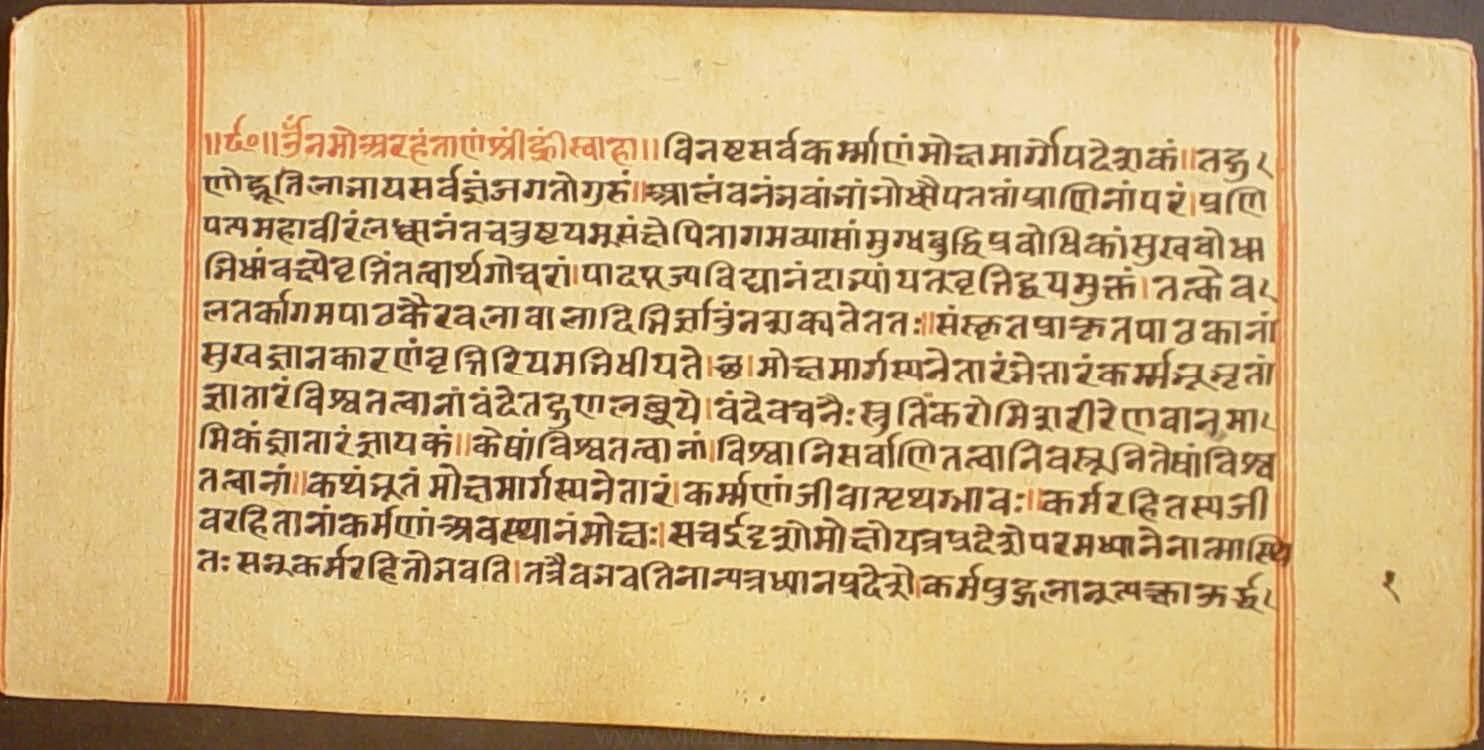 ॥६०॥ ॐ नमो अरहंताणं श्रीं ह्रीं स्वाहा॥ विनष्टसर्वकर्म्माणं मोक्षमार्गोपदेशकं॥ तद्गु
णोद्भूतिलाभाय सर्वज्ञं जगतो गुरुं॥ आलंबनं भवांभोधौ पततां प्राणिनां परं। प्रणि
पत्य महावीरं लब्धानंतचतुष्टयम् संक्षेपितागमन्यासां मुग्धबुद्धिप्रबोधिकां सुखबोधा
भिधां वक्ष्ये वृत्तिं तत्वार्थगोचरां। पादपूज्यविद्यानंदाभ्यां यत् वृत्तिद्वयमुक्तं। तत्केव
लतर्कागमपाठकैरबलाबालादिभिर्ज्ञातुं न शक्यते ततः॥ संस्कृतप्राकृतपाठकानां
सुखज्ञानकारणं वृत्तिरियमभिधीयते। छ। मोक्षमार्गस्य नेतारं भेत्तारं कर्म्मभूभृतां
ज्ञातारं विश्वतत्वानां वंदे तद्गुणलब्धये। वंदे वचनैः स्तुतिं करोमि शरीरेण वा नमा
मि कं ज्ञातारं ज्ञायकं॥ केषां विश्वतत्वानां। विश्वानि सर्वाणि तत्वानि वस्तूनि तेषां विश्व
तत्वानां॥ कथंभूतं मोक्षमार्गस्य नेतारं। कर्म्मणां जीवात्पृथग्भावः॥ कर्मरहितस्य जी
वरहितानां कर्मणां अवस्थानं मोक्षः। स च ईदृशो मोक्षो यत्र प्रदेशे परमध्यानेनात्मा स्थि
तः सन् कर्मरहितो भवति। तत्रैव भवति नान्यत्र ध्यानप्रदेशे। कर्मपुद्गलान् त्यक्त्वा ऊर्द्ध
१